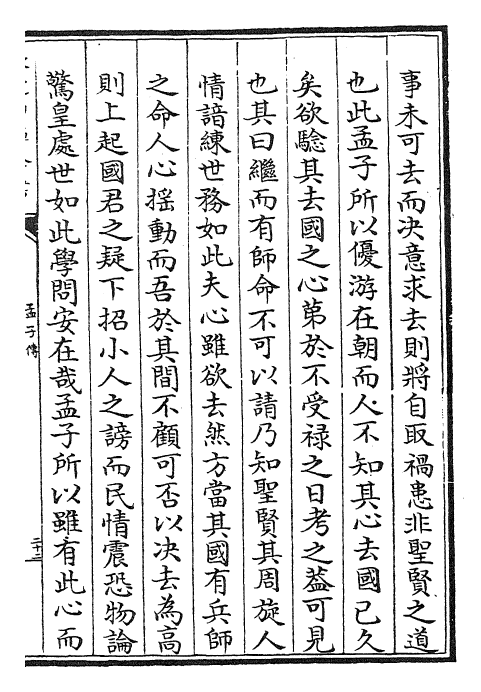 事未可去而决意求去則將自取禍患非聖賢之道
也此孟子所以優游在朝而人不知其心去國已久
矣欲驗其去國之心苐於不受禄之日考之葢可見
也其曰繼而有師命不可以請乃知聖賢其周旋人
情諳練世務如此夫心雖欲去然方當其國有兵師
之命人心揺動而吾於其間不顧可否以决去為高
則上起國君之疑下招小人之謗而民情震恐物論
驚皇處世如此學問安在哉孟子所以雖有此心而
孟子傳